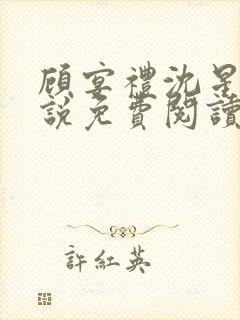 顾宴禮沈星
說免費閱讀
許紅英